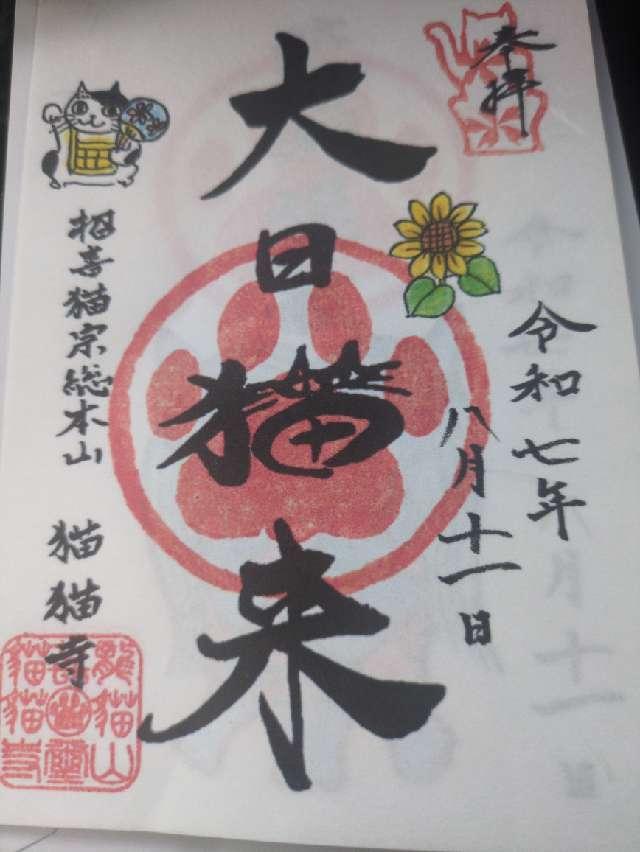 奉拝
令和七年
八月十一日
大日猫来
招喜猫宗総本山 猫猫寺
龍猫山
猫猫寺